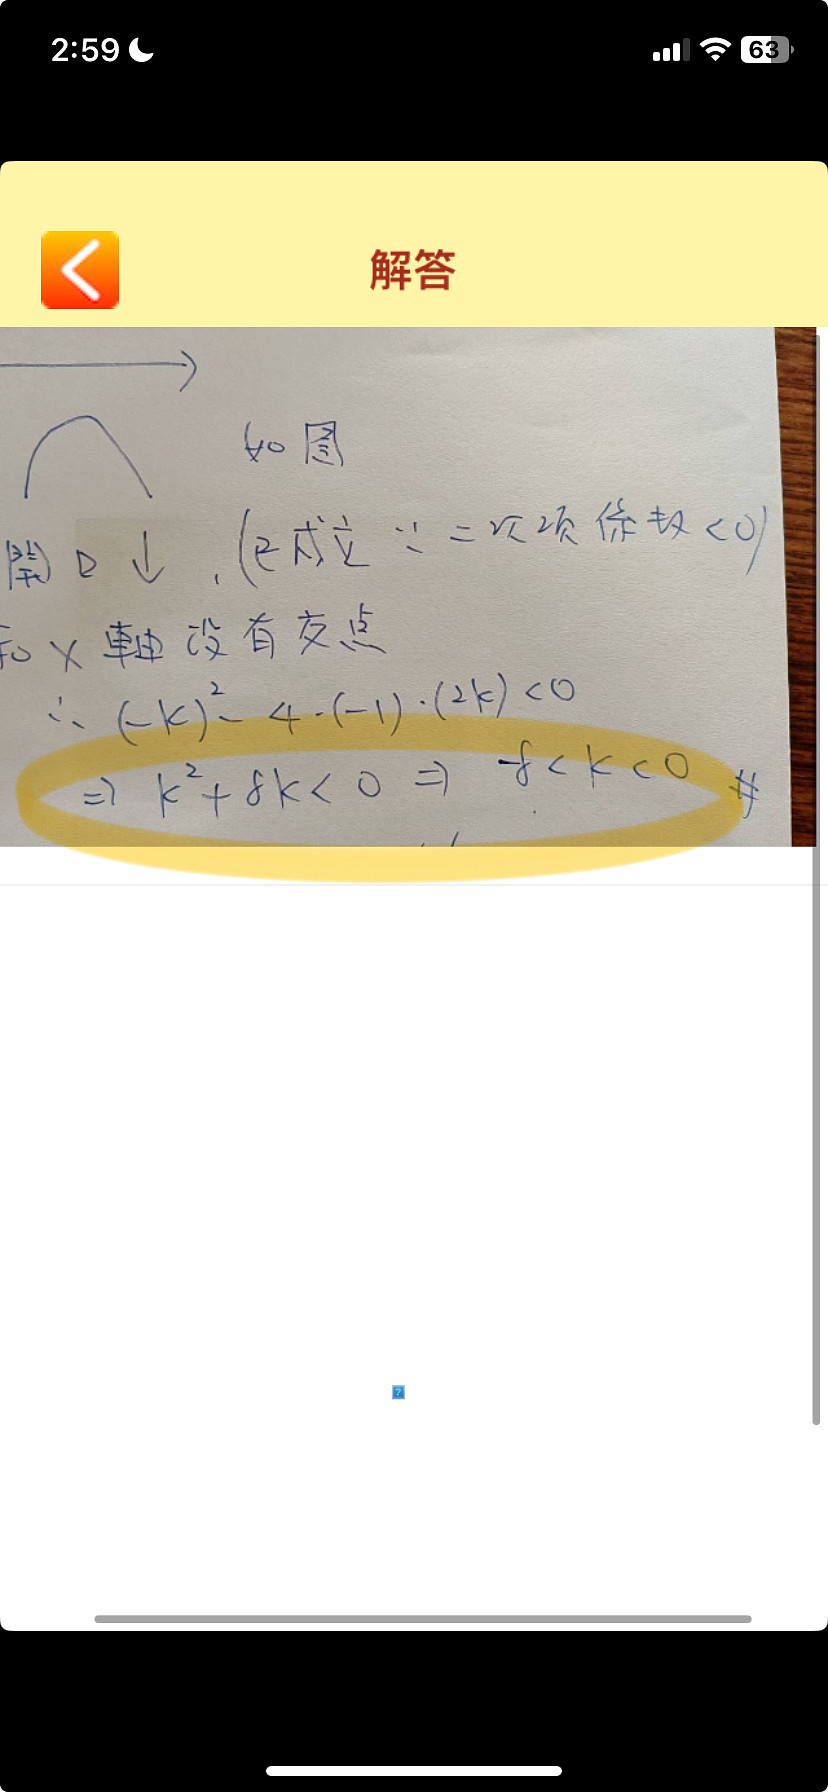 2:59
63
解答
如图
開口↓,(已成立∵二次项係数<0)
和X軸没有交点
∴ (-k)²- 4·(-1)·(2k) <0
⇒ k²+8k< 0 ⇒ -8< k <0 #
?